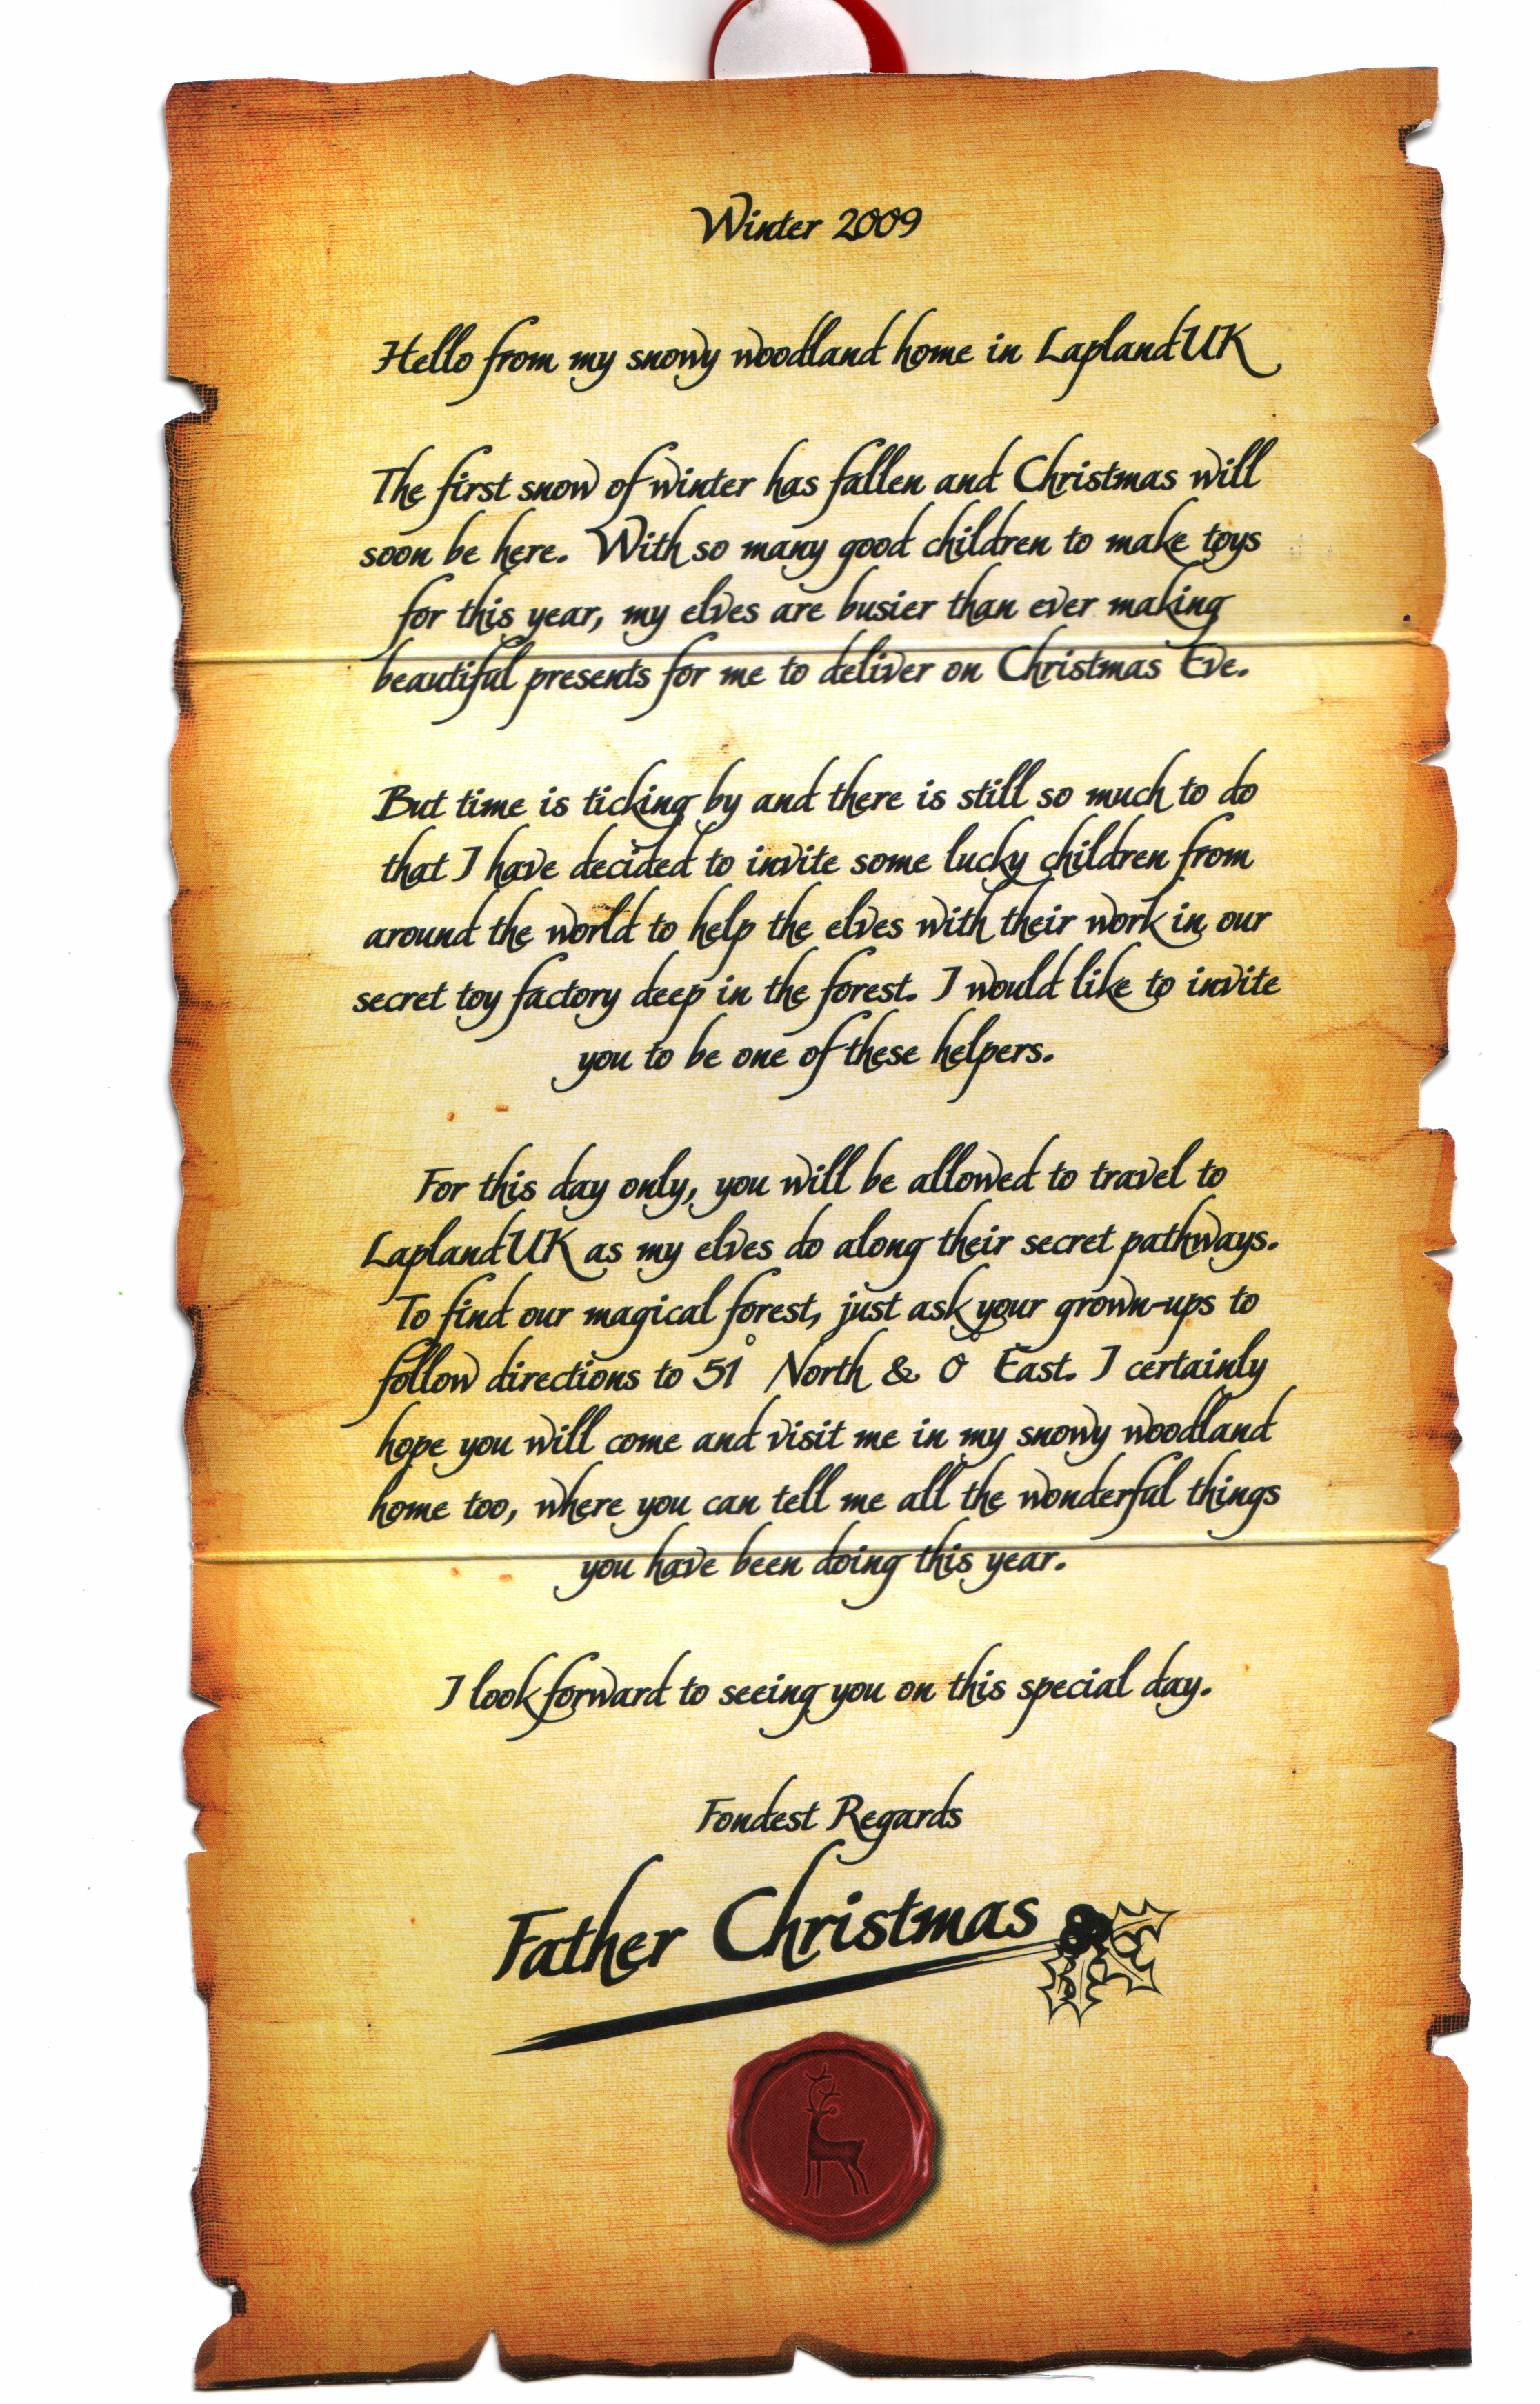 Winter 2009
Hello from my snowy woodland home in LaplandUK
The first snow of winter has fallen and Christmas will
soon be here. With so many good children to make toys
for this year, my elves are busier than ever making
beautiful presents for me to deliver on Christmas Eve.
But time is ticking by and there is still so much to do
that I have decided to invite some lucky children from
around the world to help the elves with their work in our
secret toy factory deep in the forest. I would like to invite
you to be one of these helpers.
For this day only, you will be allowed to travel to
LaplandUK as my elves do along their secret pathways.
To find our magical forest, just ask your grown-ups to
follow directions to 51° North & 0° East. I certainly
hope you will come and visit me in my snowy woodland
home too, where you can tell me all the wonderful things
you have been doing this year.
I look forward to seeing you on this special day.
Fondest Regards
Father Christmas